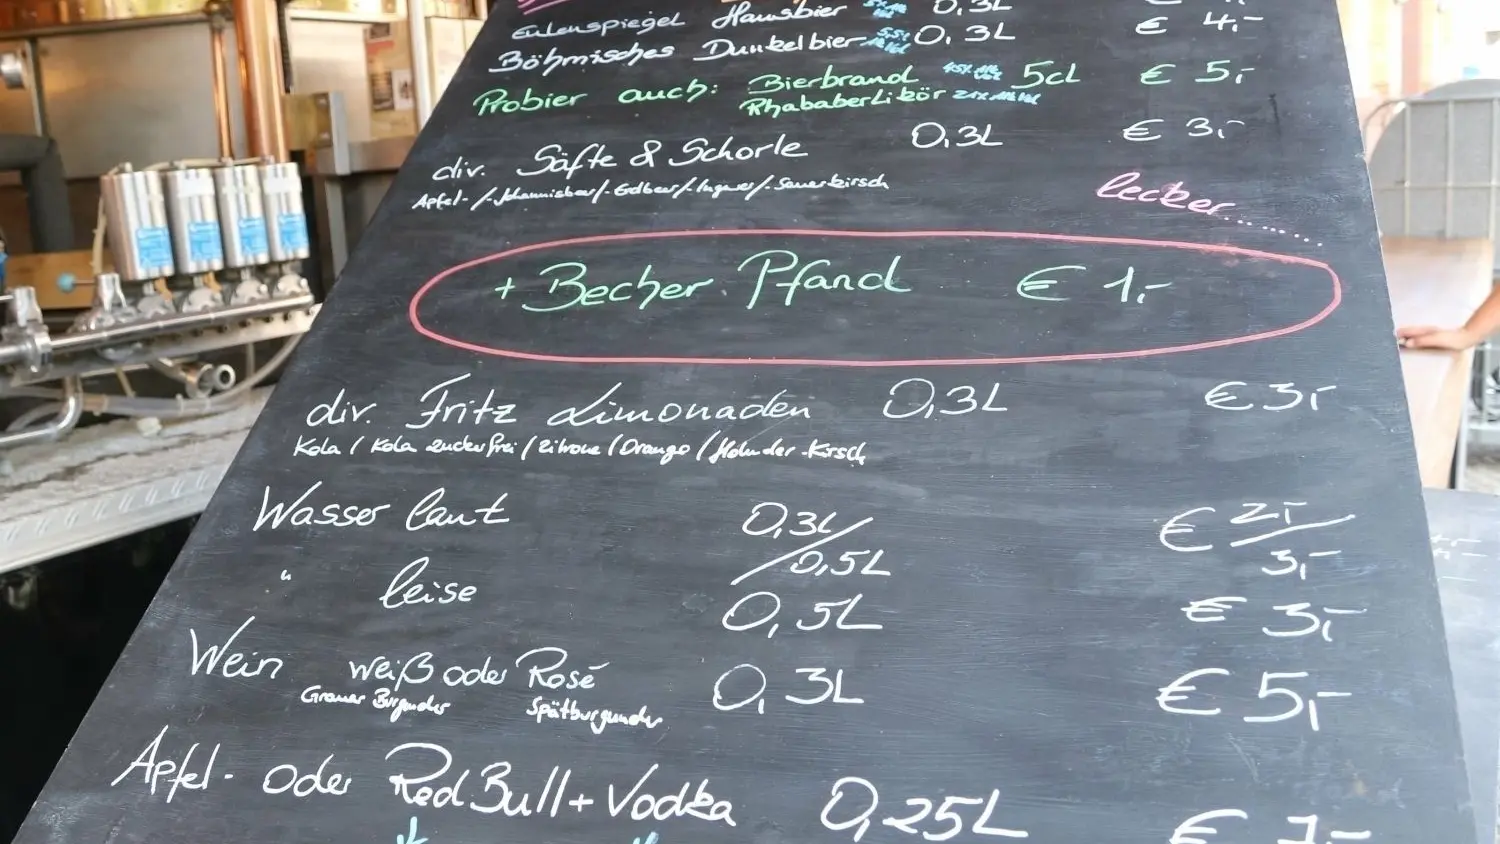 Eulenspiegel Hausbier 0,3L
Böhmisches Dunkelbier 0,3L € 4,-
Probier auch: Bierbrand 5cl € 5,-
Rhababerlikör
div. Säfte & Schorle 0,3L € 3,-
Apfel-/-Johannisbeer/-Erdbeer/-Ingwer/-Sauerkirsch
lecker......
+ Becher Pfand € 1,-
div. Fritz Limonaden 0,3L € 3,-
Kola / Kola zuckerfrei / Zitrone / Orange / Holunder-Kirsch
Wasser laut 0,3L/ € 2,-
/0,5L 3,-
" leise 0,5L € 3,-
Wein weiß oder Rosé 0,3L € 5,-
Grauer Burgunder Spätburgunder
Apfel- oder RedBull + Vodka 0,25L €